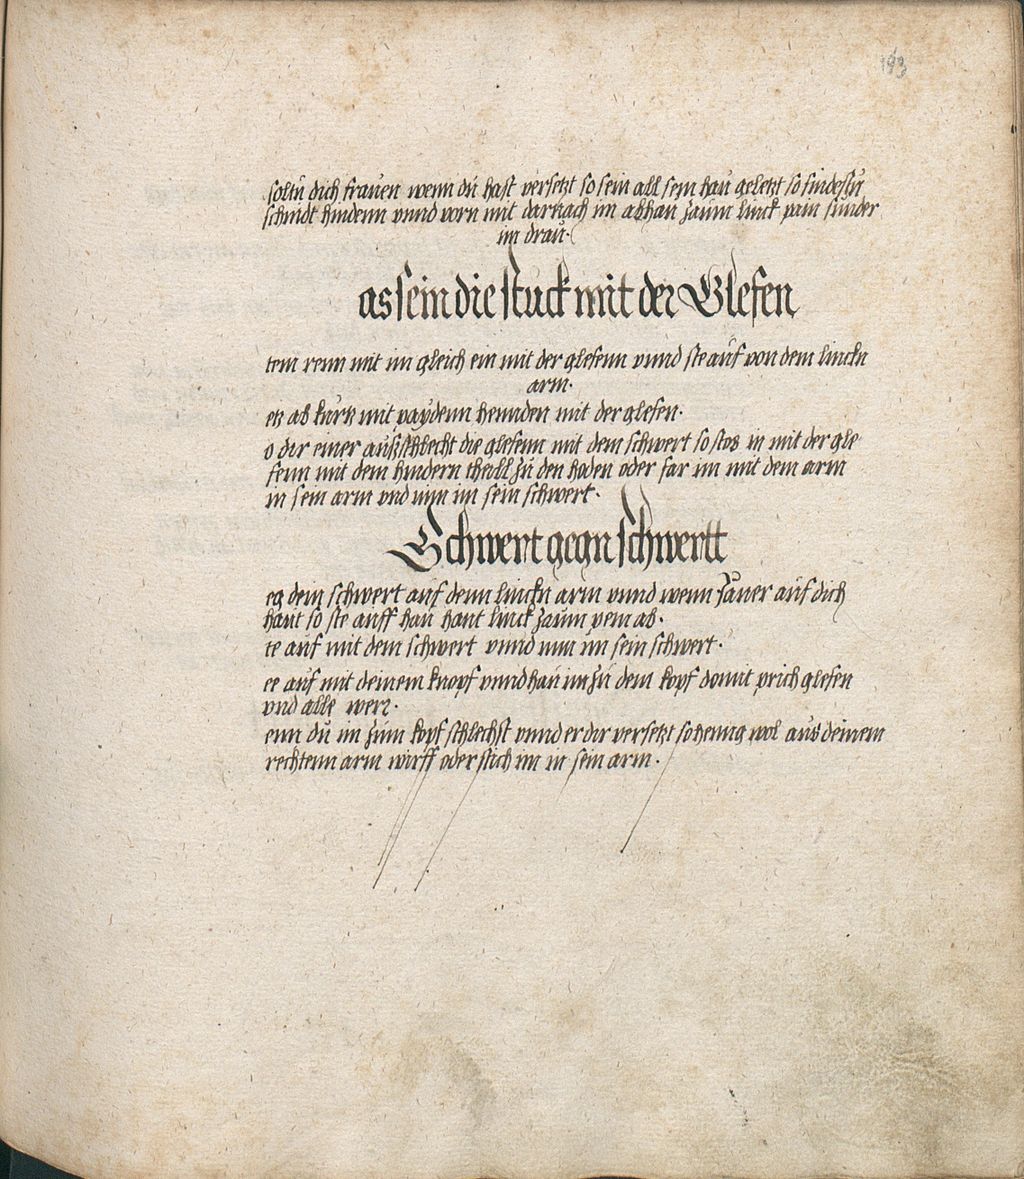 193
soltu dich frauen wenn du hast versetzt so sein all sein hau geletzt so findestu
schnidt hindenn vnnd vorn mit darnach im abhau zaum linck pain sunder
im drau.
as sein die stuck mit der Glefen
tem renn mit im gleich ein mit der glefenn vnnd ste auf von dem linckn
arm.
ek ab kurtz mit paydenn hennden mit der glefen.
o dir einer außschlecht die glefenn mit dem schwert so stos in mit der gle
fenn mit dem hindern theill zu den hoden oder far im mit dem arm
in sein arm vnd nim im sein schwert.
Schwert gegn schwertt
eg dein schwert auf denn linckn arm vnnd wenn Jener auf dich
haut so ste auff hau hant linck zaum pein ab.
te auf mit dem schwert vnnd nim im sein schwert.
ee auf mit deinem knopf vnnd hau im zu dem kopf domit prich glefen
vnd alle werr.
enn du im zum kopf schlechst vnnd er dir versetzt so heng wol aus deinem
rechtenn arm wirff oder stich im in sein arm.